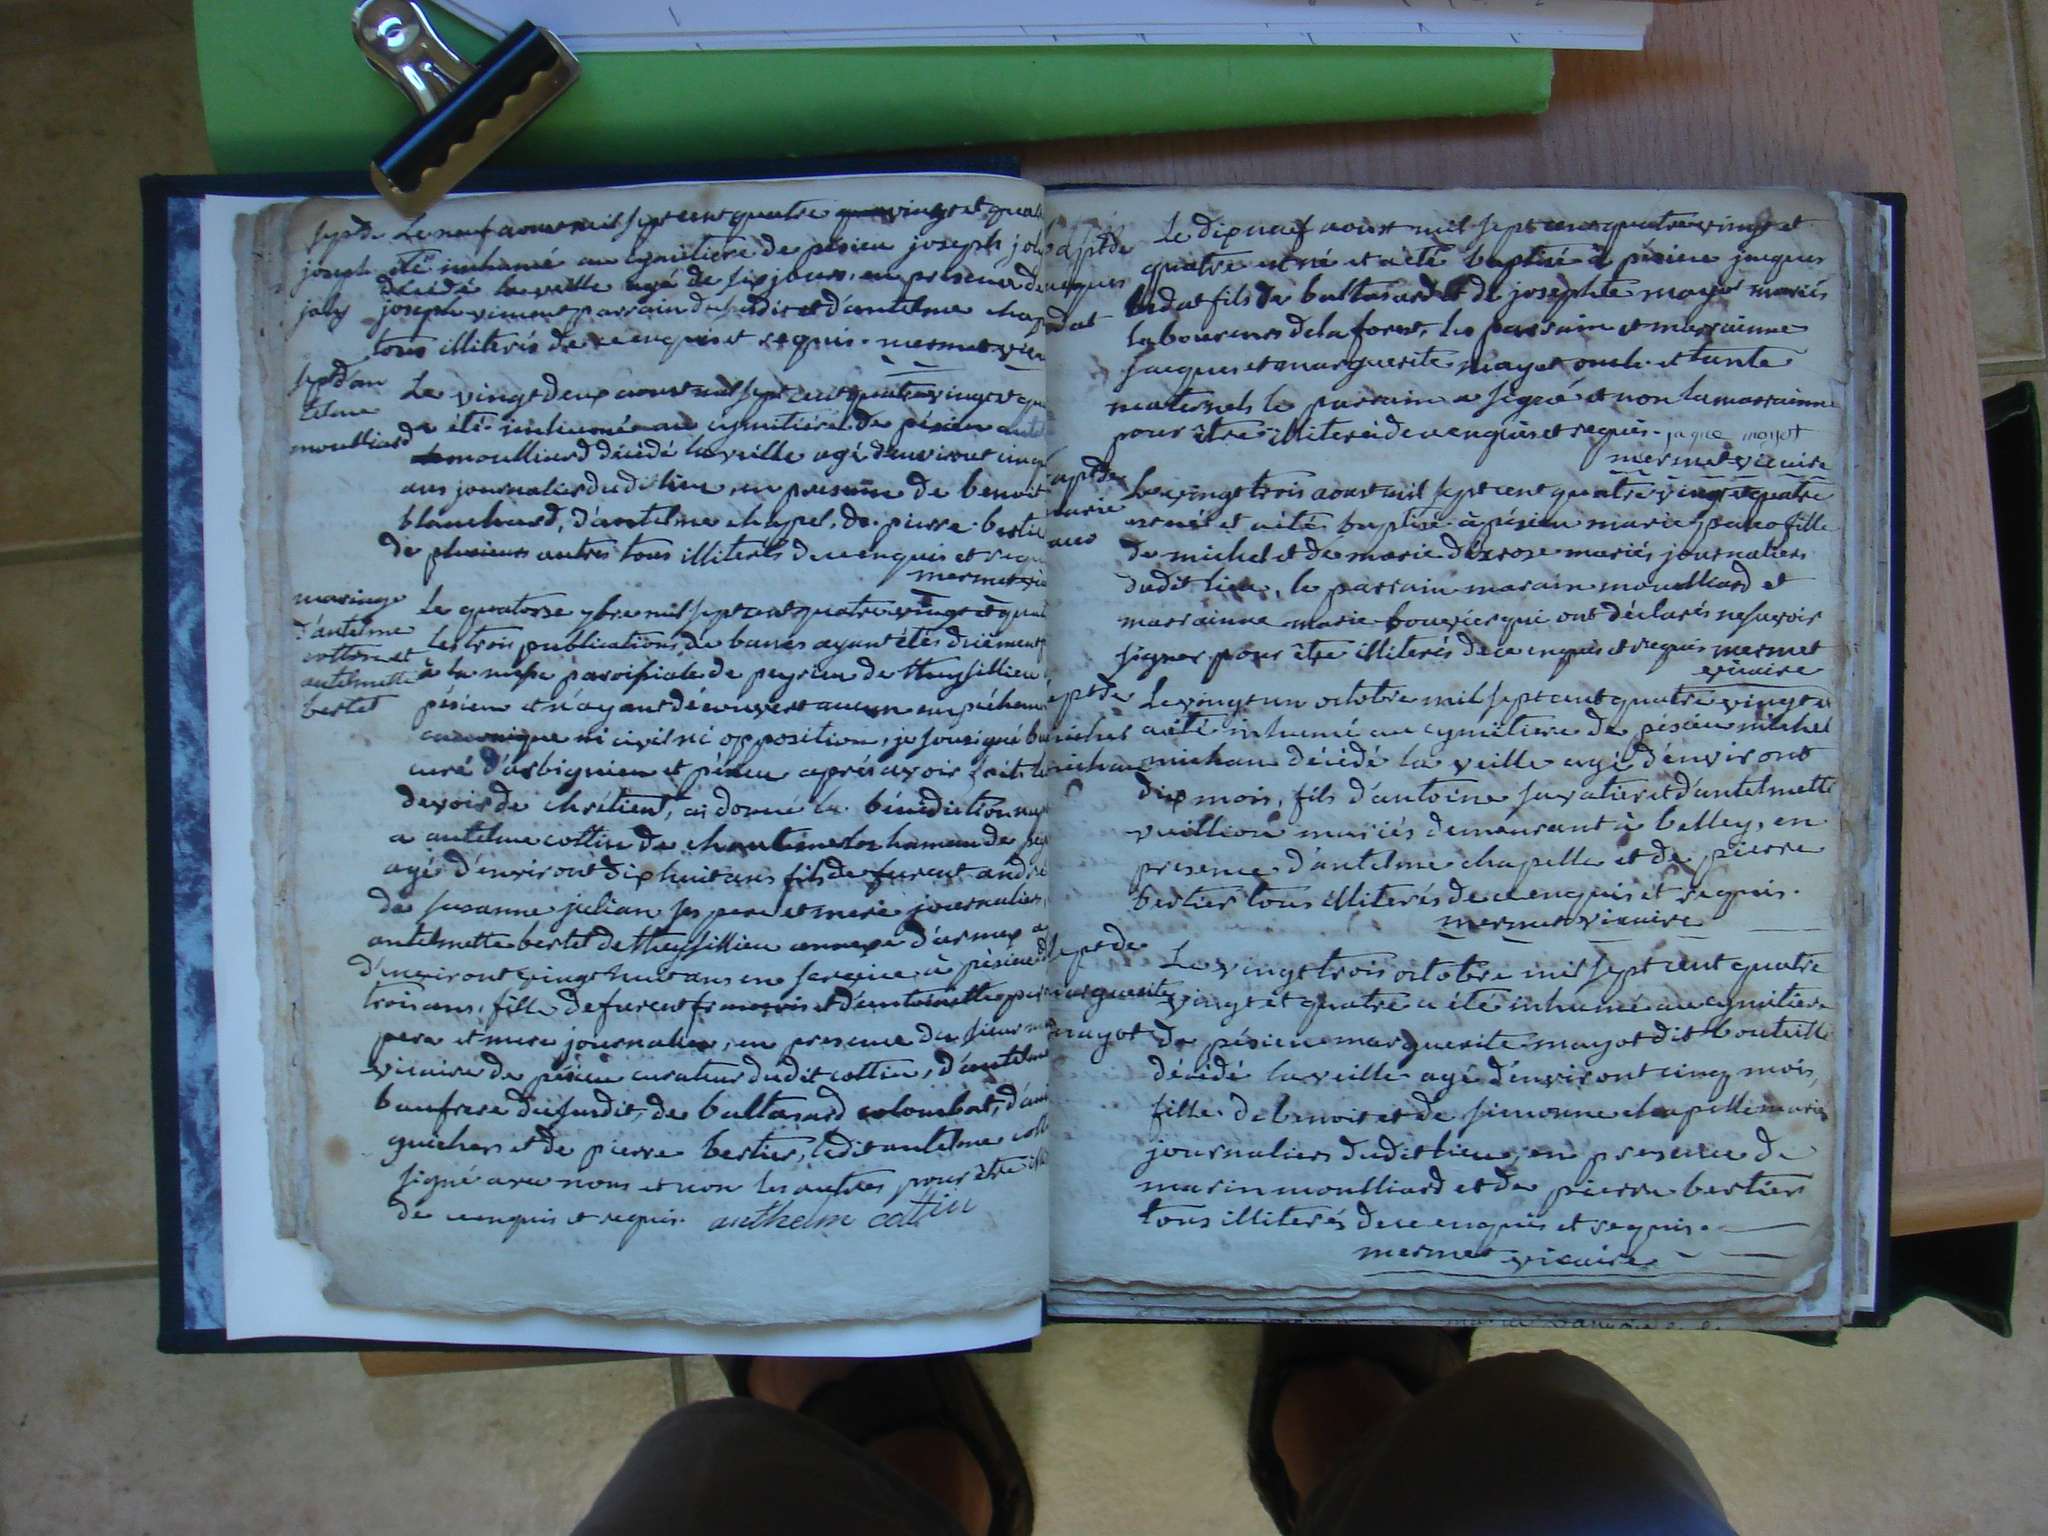 sept de
joseph
joly
Le neuf aoust mil sept cent quatre vingt et quatre
été inhumé au cymitiere de pésieu joseph joly
décédé la veille agé de six jours, en presence de
joseph vincent parrain du susdit et d'antelme chap
tous illiterés de ce enquis et requis. mermet vica
sept d'an
telme
moulliard
Le vingt deux aoust mil sept cent quatre vingt et qua
a été inhumé au cymitiére de pésieu antel
moulliard décédé la veille agé d'environt cinq
ans journalier dudit lieu, en presence de benoit
blanchard, d'antelme chapel, de pierre bertier
de plusieurs autres tous illiterés de ce enquis et requ
mermet vic
mariage
d'antelme
cottin et
antelmette
bertet
Le quatorze 7bre mil sept cent quatre vingt et quat
les trois publications de bancs ayant étés duëment
à la messe paroissiale de peyrieu de thuysillieu
pésieu et n'ayant découvert aucun empéchem
canonique ni civil ni opposition, je sousigné
curé d'arbignieu et pésieu aprés avoir
devoir de chrétient, ai donné la bénédiction nup
a antelme cottin de hameau de pey
agé d'environt dix huit ans fils de furent andré
de susanne julian ses pere et mere journaliers,
antelmette bertet de theysillieu annexe d'armix a
d'environt vingt huit ans en service à pésieu
trois ans, fille de furent francois et d'antoinette
pere et mere journaliers, en presence du sieur
vicaire de pésieu curateur dudit cottin, d'antelme
baufrere du susdit, de baltasard colombat, d'
guicher et de pierre bertier, ledit antelme cott
signé avec nous et non les autres pour être ill
de ce enquis et requis. anthelm cottin
bapt de
jacques
Le dix neuf aoust mil sept cent quatre vingt et
quatre est né et a été baptisé à pésieu jacques
bedat fils de baltasard et de josephte mayot mariés
laboureurs de la forest, les parrain et marrainne
jacques et marguerite mayot oncle et tante
maternels le parrain a signé et non la marrainne
pour être illiteré de ce enquis et requis. jaque mayot
mermet vicaire
bapt de
marie
Le vingt trois aoust mil sept cent quatre vingt et quatre
est né et a été baptisé à pésieu marie paco fille
de michel et de marie derose mariés journaliers
dudit lieu, le parrain marain moulliard et
marrainne marie bouvier qui ont déclarés ne savoir
signer pour être illiterés de ce enquis et requis mermet
vicaire
sept de
michel
michau
Le vingt un octobre mil sept cent quatre vingt et
a été inhumé au cymitiere de pésieu michel
michau décédé la veille agé d'environt
dix mois, fils d'antoine savatier et d'antelmette
vuillion mariés demeurant à belley, en
presence d'antelme chapelle et de pierre
bertier tous illiterés de ce enquis et requis.
mermet vicaire
sept de
marguerite
mayot
Le vingt trois octobre mil sept cent quatre
vingt et quatre a été inhumé au cymitiere
de pésieu marguerite mayot dit bouteille
décédé la veille agé d'environt cinq mois,
fille de benoit et de simonne chapelle mariés
journaliers dudit lieu, en presence de
marin moulliard et de pierre bertier
tous illiterés de ce enquis et requis.
mermet vicaire